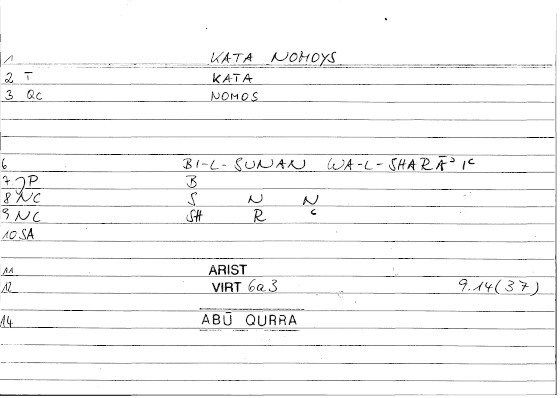 1 KATA NOMOYS
2 T KATA
3 QC NOMOS
6 BI-L-SUNAN WA-L-SHARĀʾIʿ
7 P B
8 NC S N N
9 NC SH R ʿ
10 SA
11 ARIST
12 VIRT 6a3 9.14(37)
14 ABŪ QURRA